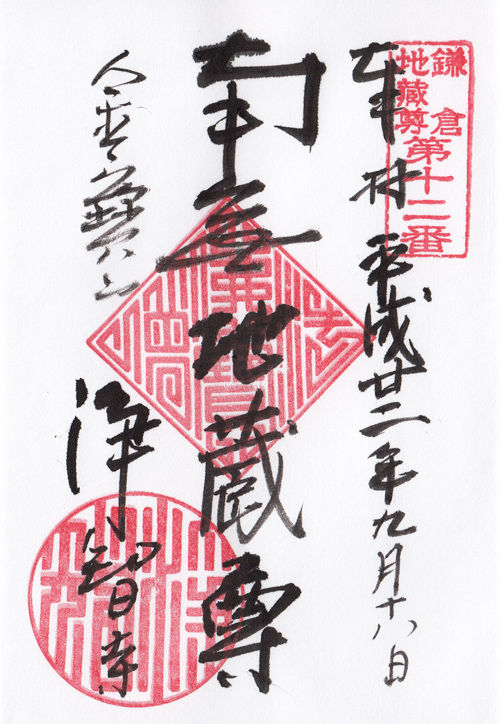 鎌倉
地蔵尊
第十二番
奉拝 平成廿二年九月十八日
南無地蔵尊
金寶山
淨智寺